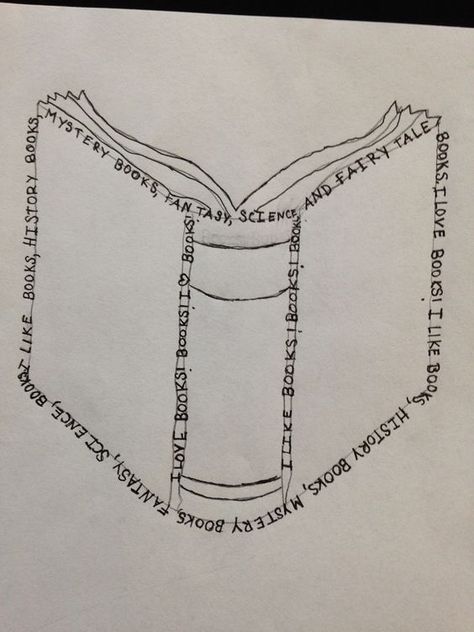 I LIKE BOOKS, HISTORY BOOKS,
MYSTERY BOOKS, FANTASY, SCIENCE, AND FAIRY TALE
BOOKS, I LOVE BOOKS! I LIKE BOOKS,
HISTORY BOOKS, MYSTERY BOOKS,
FANTASY, SCIENCE, BOOKS!
I LOVE BOOKS! BOOKS! I ♡ BOOKS!
I LIKE BOOKS! BOOKS! BOOKS!